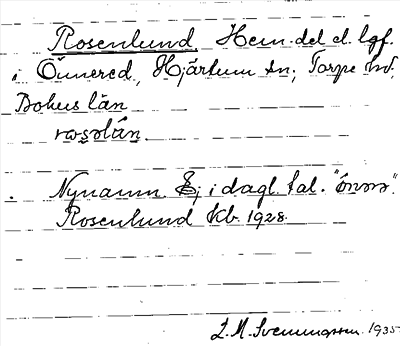 Rosenlund, Hem. del el. lgf.
i Önnered, Hjärtum sn, Torpe hd,
Bohus län
rosəlún.
Nynamn. Ej i dagl. tal.
Rosenlund kb. 1928.
L. M. Svenungsson. 1935